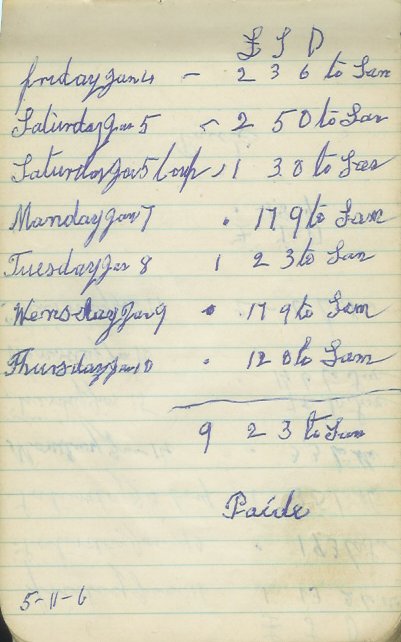 £ S D
friday Jan 4 - 2 3 6 to Sam
Saturday Jan 5 - 2 5 0 to Sam
Saturday Jan 5 1 3 0 to Sam
Manday Jan 7 . 17 9 to Sam
Tuesday Jan 8 1 2 3 to Sam
Wensday Jan 9 . 17 9 to Sam
Thursday Jan 10 . 12 0 to Sam
9 2 3 to Sam
Paide
5-11-6